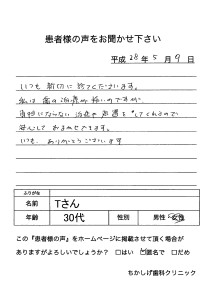 患者様の声をお聞かせ下さい
平成 28年 5月 9日
いつも親切に診てくださいます。
私は歯の治療が怖いのですが
負担にならない治療や声選をしてくれるので
安心しておまかせできます。
いつも、ありがとうございます
ふりがな
名前 Tさん
年齢 30代 性別 男性・女性
この『患者様の声』をホームページに掲載させて頂く場合が
ありますがよろしいでしょうか？ □はい ☑匿名で □だめ
ちかしげ歯科クリニック